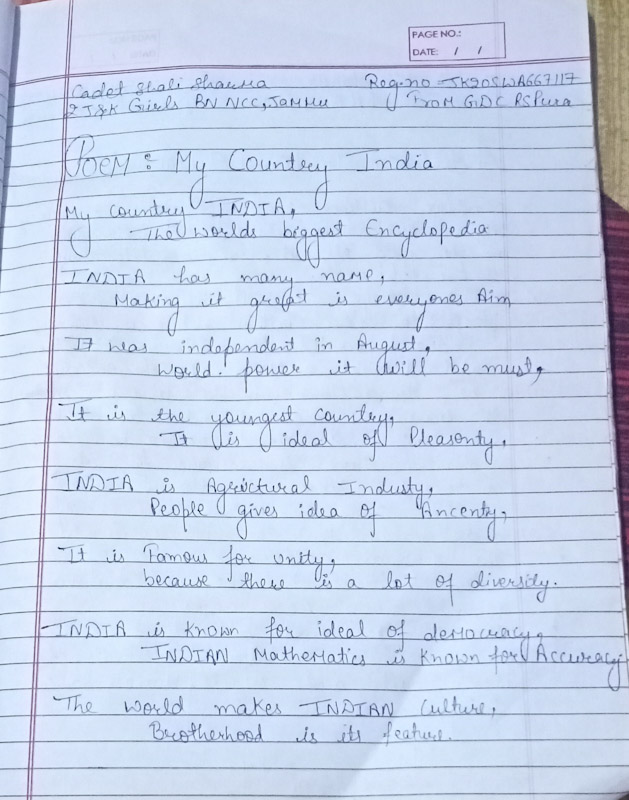 PAGE NO.:
DATE: / /
Cadet Shali Sharma Reg.no - JK20SWA667117
2 J&K Girls BN NCC, Jammu From GDC RS Pura
Poem : My Country India
My country INDIA,
The worlds biggest Encyclopedia
INDIA has many name,
Making it great is everyones Aim
It was independent in August,
World power it will be must,
It is the youngest country,
It is ideal of Pleasenty,
INDIA is Agrictural Industy,
People gives idea of Ancenty,
It is Famous for unity,
because there is a lot of diversity.
INDIA is known for ideal of democracy,
INDIAN Mathematics is known for Accuracy
The world makes INDIAN Culture,
Brotherhood is its feature.